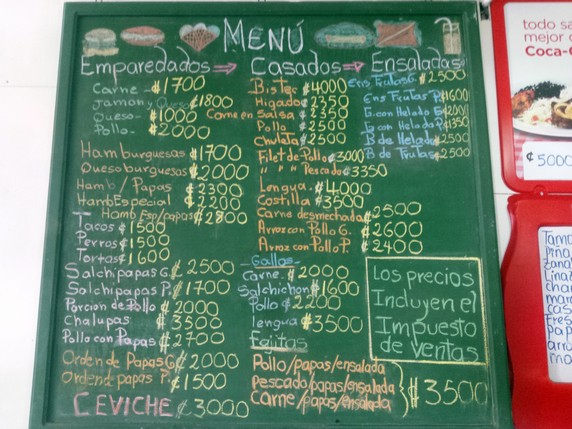 MENÚ
Emparedados ⇒ Casados ⇒ Ensaladas
Carne - ₡1700
Jamon y Queso ₡1800
Queso - ₡1000
Pollo - ₡2000
Hamburguesas ₡1700
Quesoburguesas ₡2000
Hamb/Papas ₡2300
Hamb Especial ₡2200
Hamb Esp/papas ₡2800
Tacos ₡1500
Perros ₡1500
Tortas ₡1600
Salchipapas G. ₡2500
Salchipapas P. ₡1700
Porcion de Pollo ₡2000
Chalupas ₡3500
Pollo con Papas ₡2700
Orden de Papas G ₡2000
Orden d papas P. ₡1500
CEVICHE ₡3000
Bistec ₡4000
Higado ₡2350
Carne en Salsa ₡2350
Pollo ₡2500
Chuleta ₡2500
Filet de Pollo ₡3000
" " " Pescado ₡3350
Lengua - ₡4000
Costilla ₡3500
Carne desmechada ₡2500
Arroz con Pollo G. ₡2600
Arroz con Pollo P. ₡2400
Gallos -
Carne - ₡2000
Salchichon ₡1600
Pollo ₡2200
lengua ₡3500
Fajitas
Pollo/papas/ensalada
pescado/papas/ensalada
carne/papas/ensalada
₡3500
Ens Frutas G. ₡2500
Ens Frutas P. ₡1600
G. con Helado G ₡2000
G con Helado P ₡1350
B de Helado ₡2500
B de Frutas ₡2500
Los precios
Incluyen el
Impuesto
de ventas
todo sa
mejor c
Coca-C
₡5000